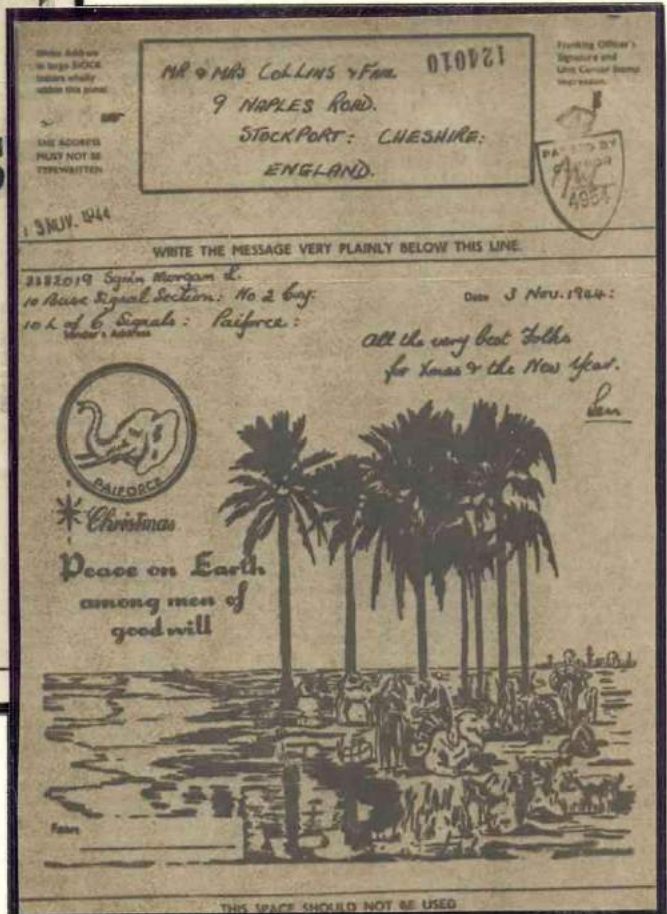 Write Address
in large BLOCK
letters wholly
within this panel
THE ADDRESS
MUST NOT BE
TYPEWRITTEN
13 NOV. 1944
124010
MR & MRS COLLINS & FAM.
9 NAPLES ROAD.
STOCKPORT: CHESHIRE:
ENGLAND.
Franking Officer's
Signature and
Unit Censor Stamp
Impression.
PASSED BY
4954
WRITE THE MESSAGE VERY PLAINLY BELOW THIS LINE.
Morgan L.
10 Base Signal Section: No 2 Coy:
10 L of C Signals: Paiforce:
Sender's Address
Date 3 Nov. 1944:
All the very best Folks
for Xmas & the New Year.
Len
PAIFORCE
Christmas
Peace on Earth
among men of
goodwill
From
THIS SPACE SHOULD NOT BE USED